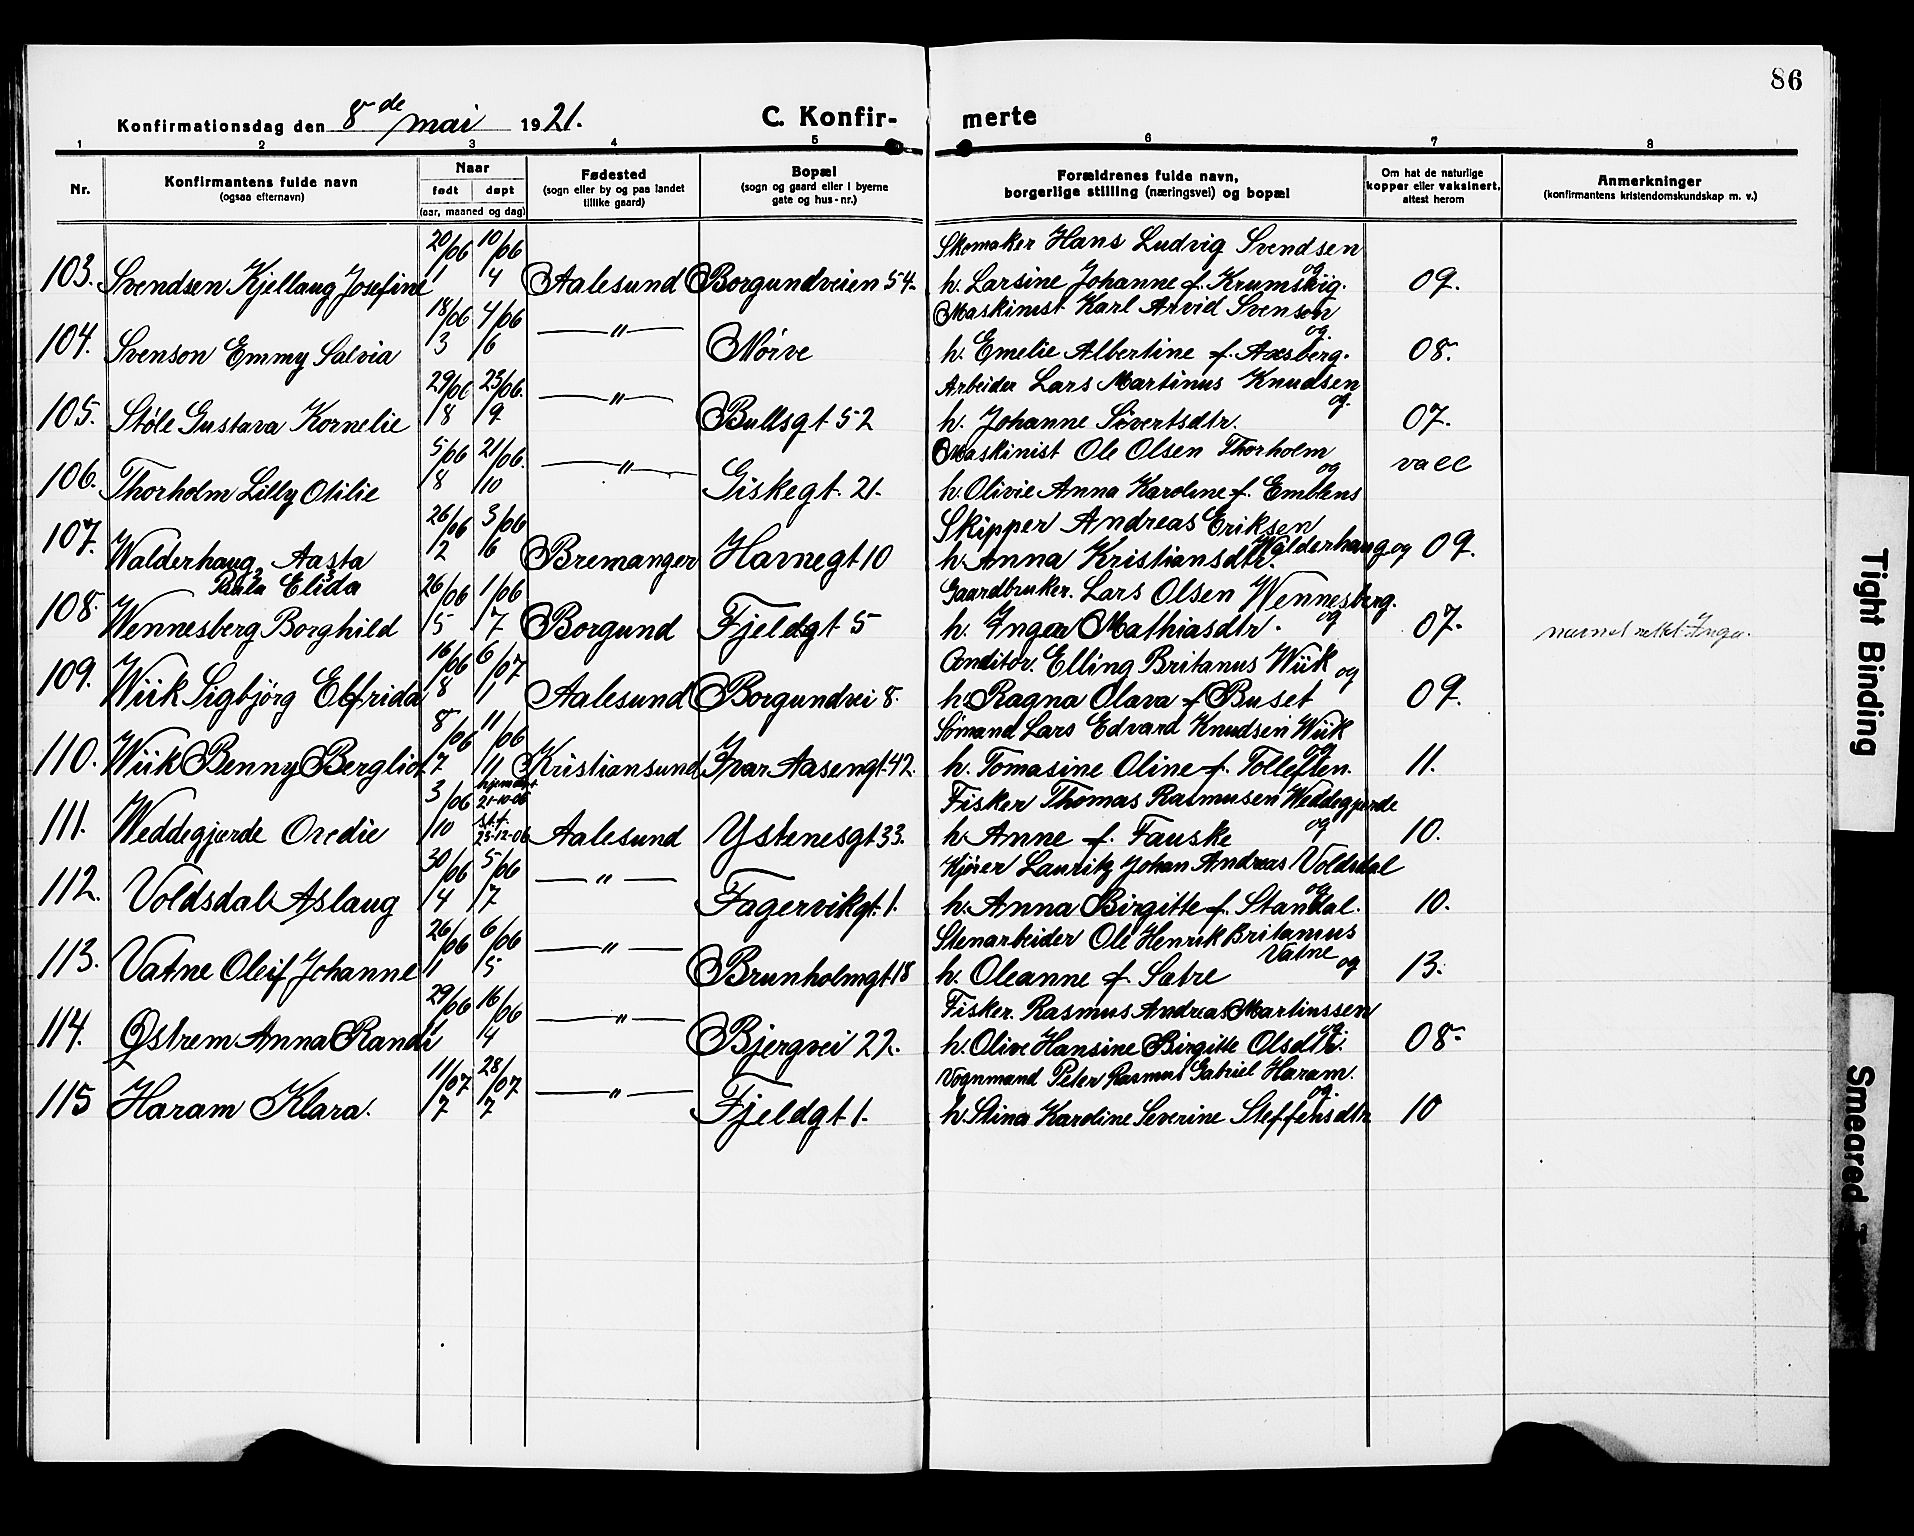 86
Konfirmationsdag den 8de mai 1921.
C. Konfirmerte
1 2 3 4 5 6 7 8
Nr. | Konfirmantens fulde navn (ogsaa efternavn) | Naar født døpt (aar, maaned og dag) | Fødested (sogn eller by og paa landet tillike gaard) | Bopæl (sogn og gaard eller i byerne gate og hus-nr.) | Forældrenes fulde navn, borgerlige stilling (næringsvei) og bopæl | Om hat de naturlige kopper eller vaksinert, attest herom | Anmerkninger (konfirmantens kristendomskundskap m. v.)
103. Svendsen Kjellaug Josefine 20/1 06 10/4 06 Aalesund Borgundveien 54. Skomaker Hans Ludvig Svendsen og
h. Larsine Johanne f. Krumsvig. 09.
104. Svenson Emmy Salvia 18/3 06 4/6 06 —"— Nørve Maskinist Karl Arvid Svenson og
h. Emelie Albertine f. Axsberg. 08.
105. Støle Gustava Kornelie 29/8 06 23/9 06. —"— Bullsgt 52 Arbeider Lars Martinus Knudsen og.
h. Johanne Sivertsdtr. 07.
106. Thorholm Lilly Otilie 5/8 06 21/10 06. —"— Giskegt. 21. Maskinist Ole Olsen Thorholm og
h. Olivie Anna Karoline f. Emblens vacc
107. Walderhaug, Aasta 26/2 06 3/6 06 Bremanger Havnegt 10 Skipper Andreas Eriksen Walderhaug og
Paula Elida h. Anna Kristiansdtr. 09.
108. Wennesberg Borghild 26/5 06 1/7 06 Borgund Fjeldgt 5 Gaardbruker. Lars Olsen Wennesberg. og
h. Ingea Mathiasdtr. 07. navnet rettet: Inga.
109. Wiik Sigbjörg Elfrida 16/8 06 6/1 07 Aalesund Borgundvei 8. Conditor. Elling Britanus Wiik og
h. Ragna Olava f Buset 09.
110. Wiik Benny Bergliot 8/7 06 11/11 06 Kristiansund Ivar Aasengt. 42. Sømand Lars Edvard Knudsen Wiik og
h. Tomasine Oline f. Tollefsen. 11.
111. Weddegjerde Oredie 3/10 06 hjemdøpt 21-10-06 st.f. 25-12-06 Aalesund Ystenesgt 33. Fisker Thomas Rasmusen Weddegjerde og
h. Anne f. Fauske 10.
112. Voldsdal Aslaug 30/4 06 5/7 06 —"— Fagervikgt. 1. Kjører Lauritz Johan Andreas Voldsdal og
h. Anna Birgitte f. Standal. 10.
113. Vatne Oleif Johanne 26/1 06 6/5 06 —"— Brunholmgt 18 Stenarbeider Ole Henrik Britanus Vatne og
h. Oleanne f. Satre 13.
114. Østrem Anna Randi 29/1 06 16/4 06 —"— Bjergvei 22. Fisker. Rasmus Andreas Martinssen og.
h. Olive Hansine Birgitte Olsdtr. 08.
115 Haram Klara. 11/7 07 28/7 07 —"— Fjeldgt 1. Vognmand Peter Rasmus Gabriel Haram. og.
h. Stina Karoline Severine Steffensdtr 10
Tight Binding
Smeared